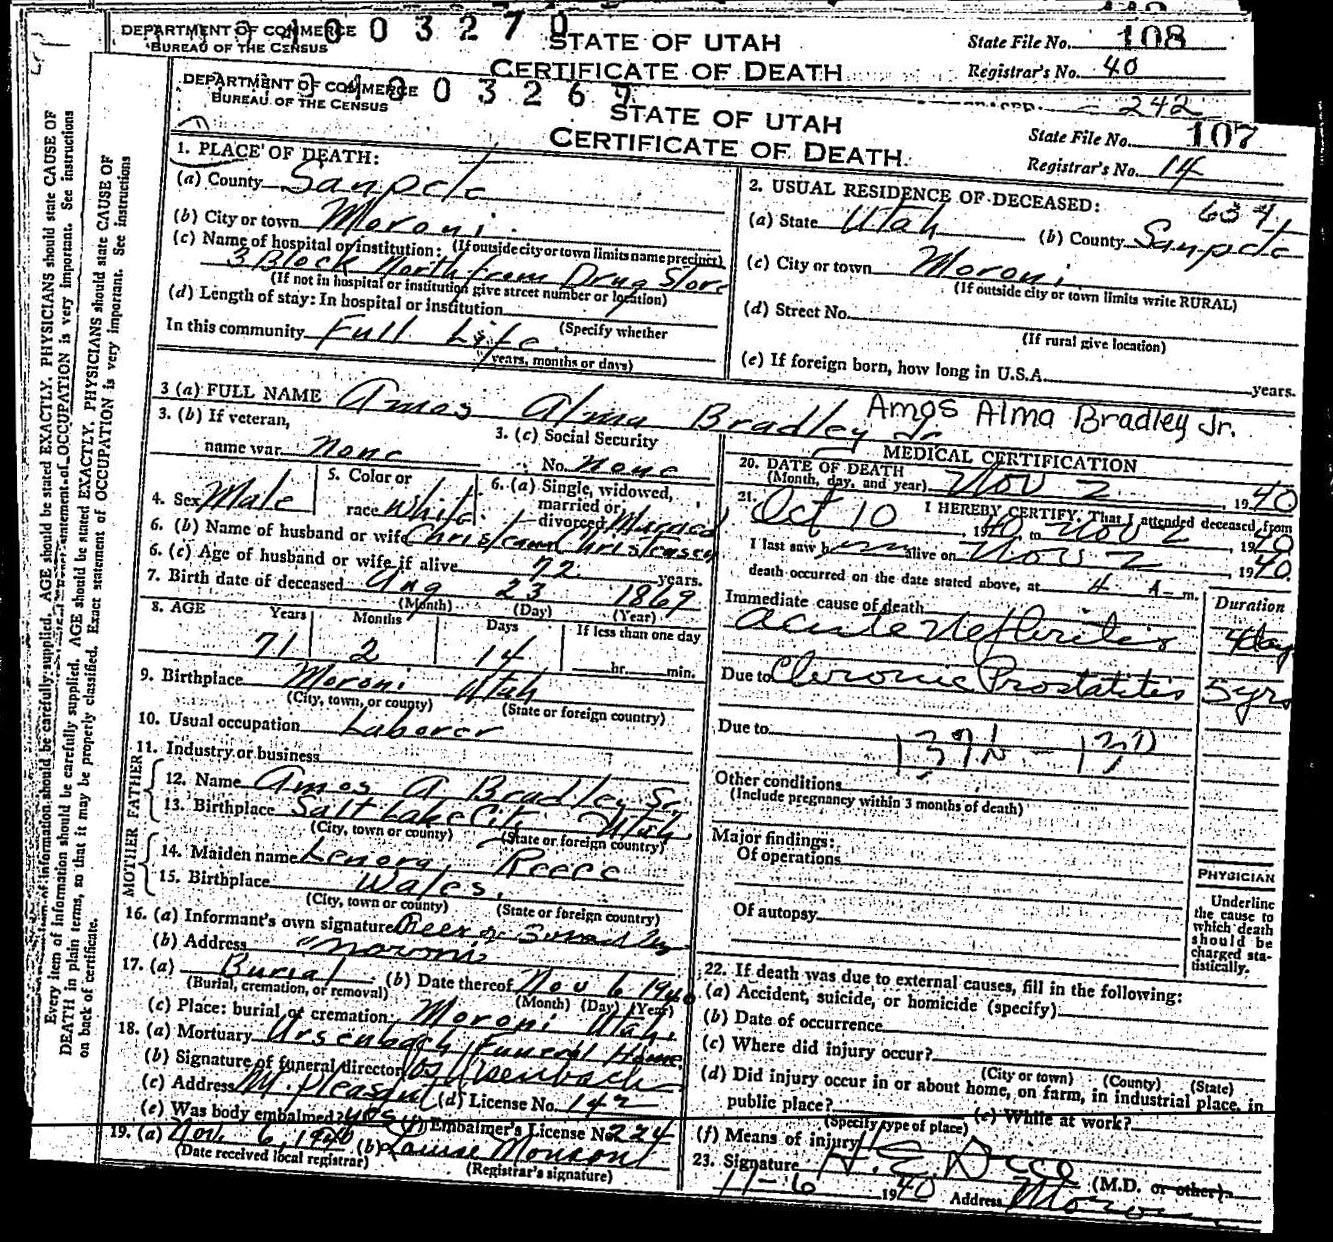 DEPARTMENT OF COMMERCE
BUREAU OF THE CENSUS
STATE OF UTAH
CERTIFICATE OF DEATH
State File No. 108
Registrar's No. 40
242
DEPARTMENT OF COMMERCE
BUREAU OF THE CENSUS
STATE OF UTAH
CERTIFICATE OF DEATH
State File No. 107
Registrar's No. 14
1. PLACE OF DEATH:
(a) County Sanpete
(b) City or town Moroni
(c) Name of hospital or institution: (If outside city or town limits name precinct)
3 Block North from Drug Store
(If not in hospital or institution give street number or location)
(d) Length of stay: In hospital or institution
(Specify whether
In this community Full Life
years, months or days)
2. USUAL RESIDENCE OF DECEASED:
(a) State Utah (b) County Sanpete
(c) City or town Moroni
(If outside city or town limits write RURAL)
(d) Street No.
(If rural give location)
(e) If foreign born, how long in U.S.A. years.
3 (a) FULL NAME Amos Alma Bradley Jr
Amos Alma Bradley Jr.
3. (b) If veteran,
name war none
3. (c) Social Security
No. none
4. Sex Male
5. Color or
race White
6. (a) Single, widowed,
married or
divorced Married
6. (b) Name of husband or wife
6. (c) Age of husband or wife if alive 72 years.
7. Birth date of deceased Aug 23 1869
(Month) (Day) (Year)
8. AGE Years Months Days If less than one day
71 2 14 hr. min.
9. Birthplace Moroni Utah
(City, town, or county) (State or foreign country)
10. Usual occupation Laborer
11. Industry or business
FATHER
12. Name Amos A Bradley Sr.
13. Birthplace Salt Lake City Utah
(City, town or county) (State or foreign country)
MOTHER
14. Maiden name Lenora Reece
15. Birthplace Wales
(City, town or county) (State or foreign country)
16. (a) Informant's own signature
(b) Address Moroni
17. (a) Burial (b) Date thereof Nov 6 1940
(Burial, cremation, or removal) (Month) (Day) (Year)
(c) Place: burial or cremation Moroni Utah.
18. (a) Mortuary Ursenbach Funeral Home
(b) Signature of funeral director Ursenbach
(c) Address M. Pleasant (d) License No. 142
(e) Was body embalmed? yes (f) Embalmer's License No. 224
19. (a) Nov. 6, 1940 (b) Louise Monson
(Date received local registrar) (Registrar's signature)
MEDICAL CERTIFICATION
20. DATE OF DEATH
(Month, day, and year) Nov 2 1940
21. I HEREBY CERTIFY, That I attended deceased from
Oct 10 1940 to Nov 2 1940
I last saw h alive on Nov 2 1940
death occurred on the date stated above, at 4 A m.
Immediate cause of death Duration
Acute Nefhritis 4 days
Due to Chronic Prostatitis 5 yrs
Due to
Other conditions
(Include pregnancy within 3 months of death)
Major findings:
Of operations
Of autopsy
PHYSICIAN
Underline
the cause to
which death
should be
charged sta-
tistically.
22. If death was due to external causes, fill in the following:
(a) Accident, suicide, or homicide (specify)
(b) Date of occurrence
(c) Where did injury occur?
(City or town) (County) (State)
(d) Did injury occur in or about home, on farm, in industrial place, in
public place? (e) While at work?
(Specify type of place)
(f) Means of injury
23. Signature (M.D. or other)
11-6 1940 Address Moroni
Every item of information should be carefully supplied. AGE should be stated EXACTLY. PHYSICIANS should state CAUSE OF
DEATH in plain terms, so that it may be properly classified. Exact statement of OCCUPATION is very important. See instructions
on back of certificate.